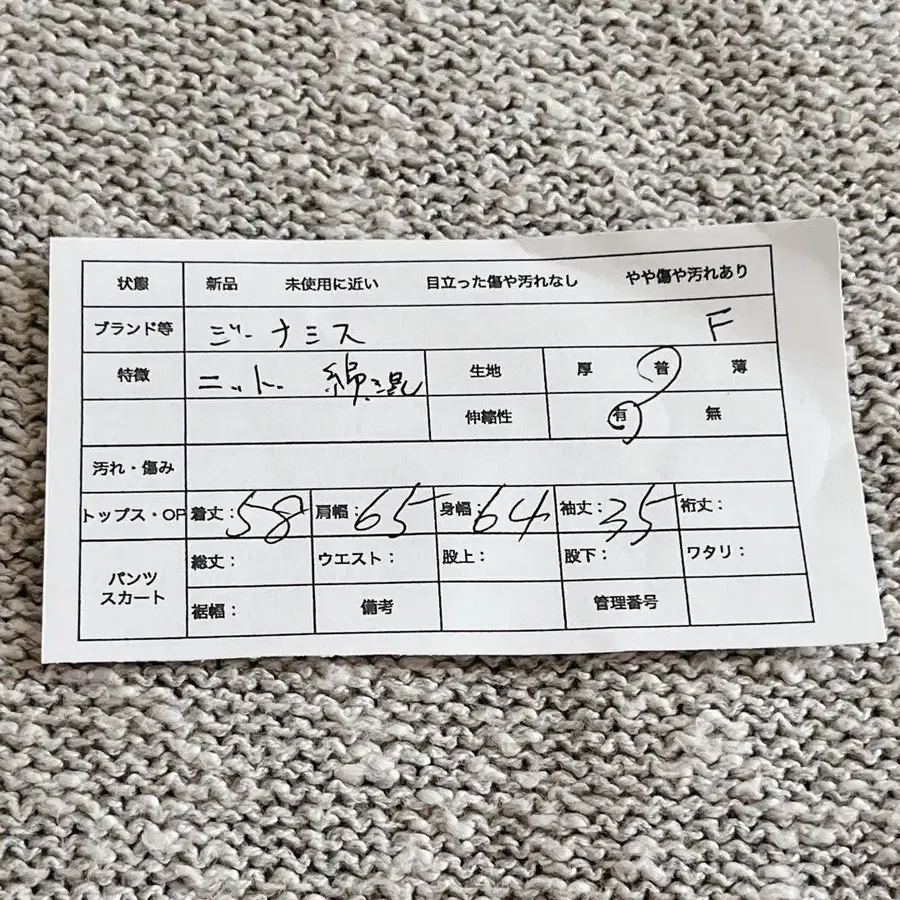 状態 新品 未使用に近い 目立った傷や汚れなし やや傷や汚れあり
ブランド等 ジーナミス F
特徴 ニット. 綿混 生地 厚 普 薄
伸縮性 有 無
汚れ・傷み
トップス・OP 着丈:58 肩幅:65 身幅:64 袖丈:35 裄丈:
パンツ スカート 総丈: ウエスト: 股上: 股下: ワタリ:
裾幅: 備考 管理番号